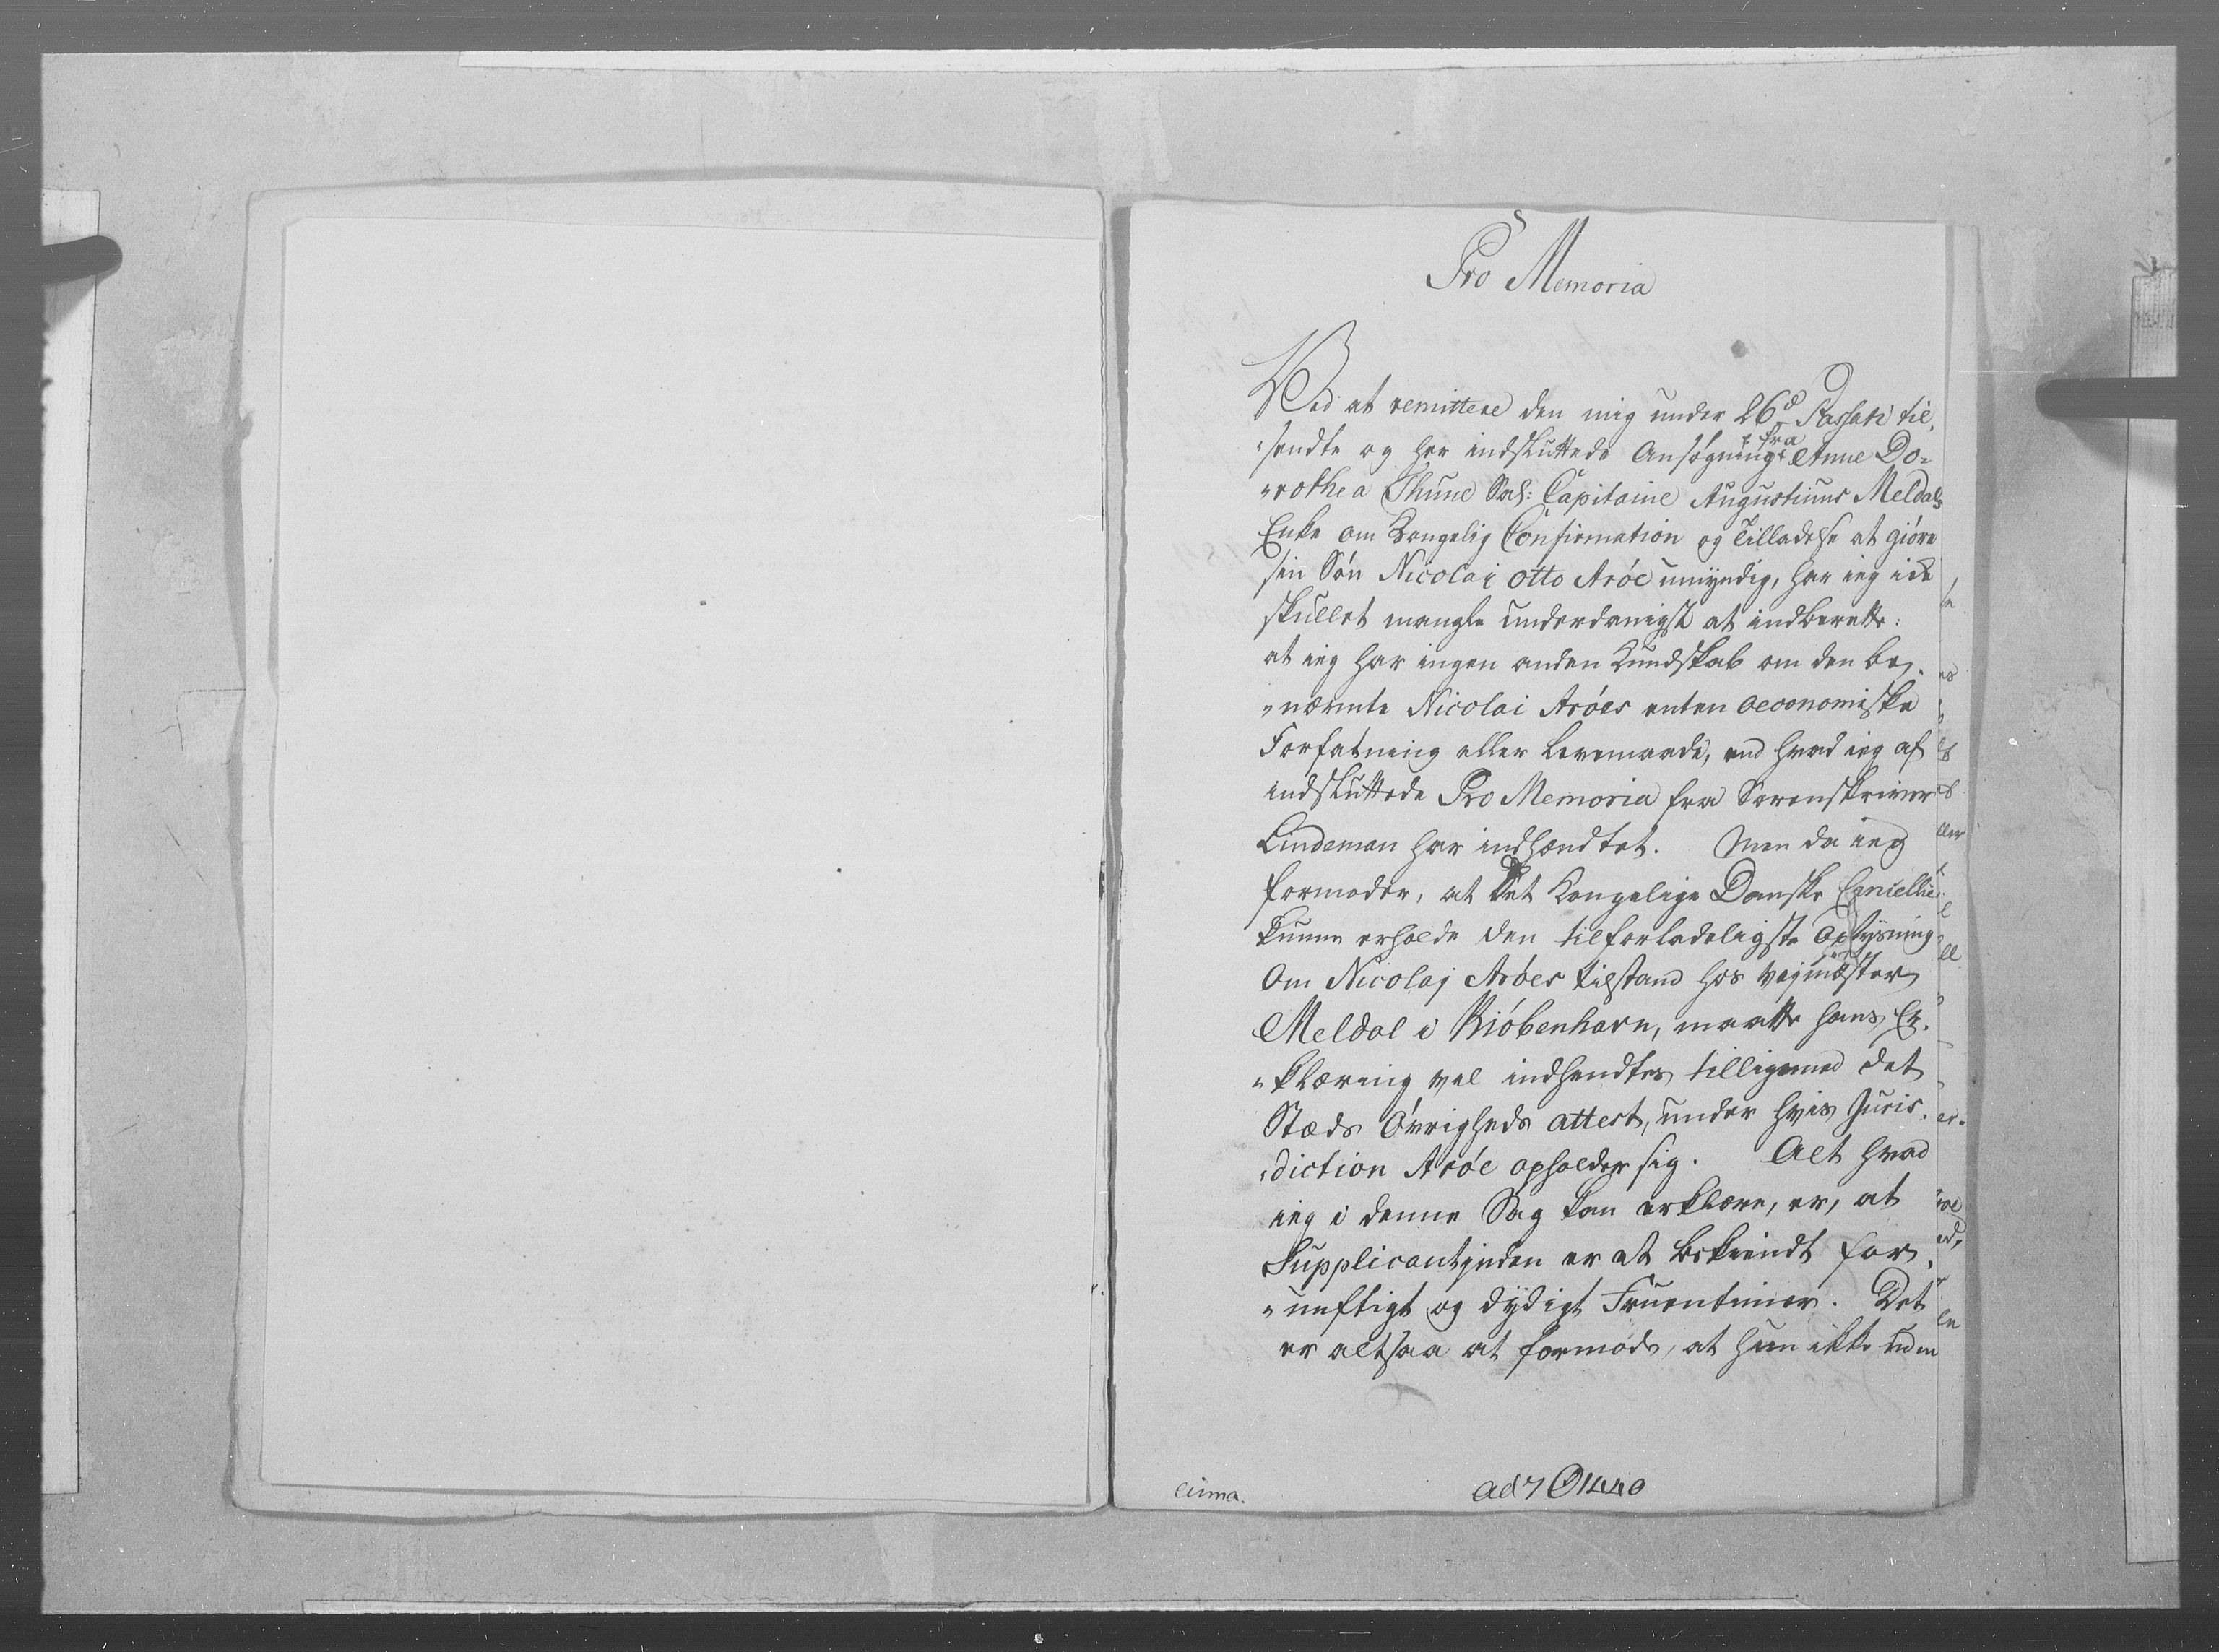 Pro Memoria
Ved at remittere den mig under 26d Passati til¬
"sendte og her indsluttede Ansøgning fra Anne Do¬
"rothea Thune Sal: Capitaine Augustinus Meldals
Enke om Kongelig Confirmation og Tilladelse at giøre
sin Søn Nicolai Otto Arøe umyndig, har ieg icke
skullet mangle underdanigst at indberette:
at ieg har ingen anden Kundskab om den be¬
"nævnte Nicolai Arøes enten oeconomiske
Forfatning eller Levemaade, end hvad ieg af
indsluttede Pro Memoria fra Sorenskriver
Lindeman har indhændtet. Men da ieg
formoder, at Det Kongelige Danske Cancellie
kunne erholde den tilforladeligste Oplysning
Om Nicolaj Arøes tilstand hos Vejmester
Meldal i Kiøbenhavn, maatte hans Er¬
"klæring vel indhendtes tilligemed det
Stæds Øvrigheds attest, under hvis Juris¬
"diction Arøe opholder sig. Alt hvad
ieg i denne Sag kan erklære, er, at
Supplicantinden er et bekiendt for¬
"nuftigt og dydigt Fruentimer. Det
er altsaa at formode, at hun ikke uden